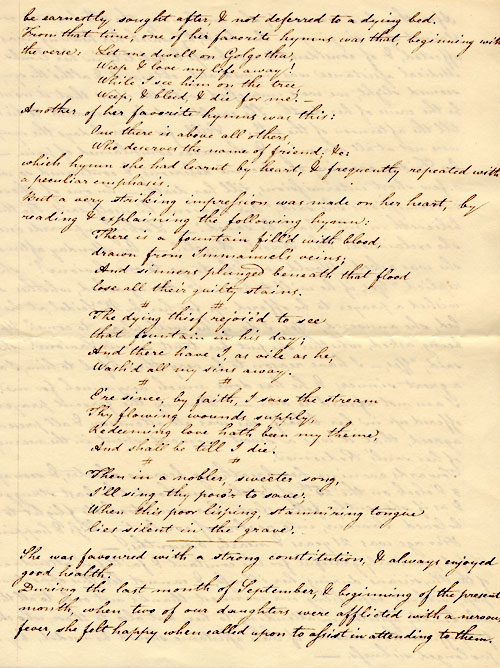 be earnestly sought after, & not deferred to a dying bed.
From that time, one of her favorite hymns was that, beginning with
the verse: Let me dwell on Golgotha,
Weep & love my life away!
While I see him on the tree
Weep, & bleed, & die for me! —
Another of her favorite hymns was this:
One there is above all others,
Who deserves the name of friend; &c;
which hymn she had learnt by heart, & frequently repeated with
a peculiar emphasis.
But a very striking impression was made on her heart, by
reading & explaining the following hymn:
There is a fountain fill'd with blood,
drawn from Immanuel's veins;
And sinners plunged beneath that flood
lose all their guilty stains.
# #
The dying thief rejoic'd to see
that fountain in his day;
And there have I, as vile as he,
Wash'd all my sins away.
# #
E're since, by faith, I saw the stream
Thy flowing wounds supply,
Redeeming love hath been my theme,
And shall be till I die.
# #
Then in a nobler, sweeter song,
I'll sing thy pow'r to save;
When this poor lisping, stammining tongue
lies silent in the grave.
She was favoured with a strong constitution, & always enjoyed
good health.
During the last month of September, & beginning of the present
month, when two of our daughters were afflicted with a nervous
fever, she felt happy when called upon to assist in attending to them.